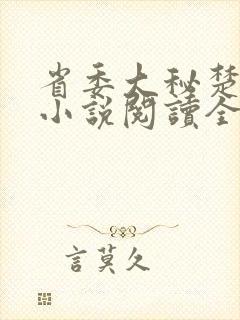 省委大秘楚
小說閱讀全
言莫久